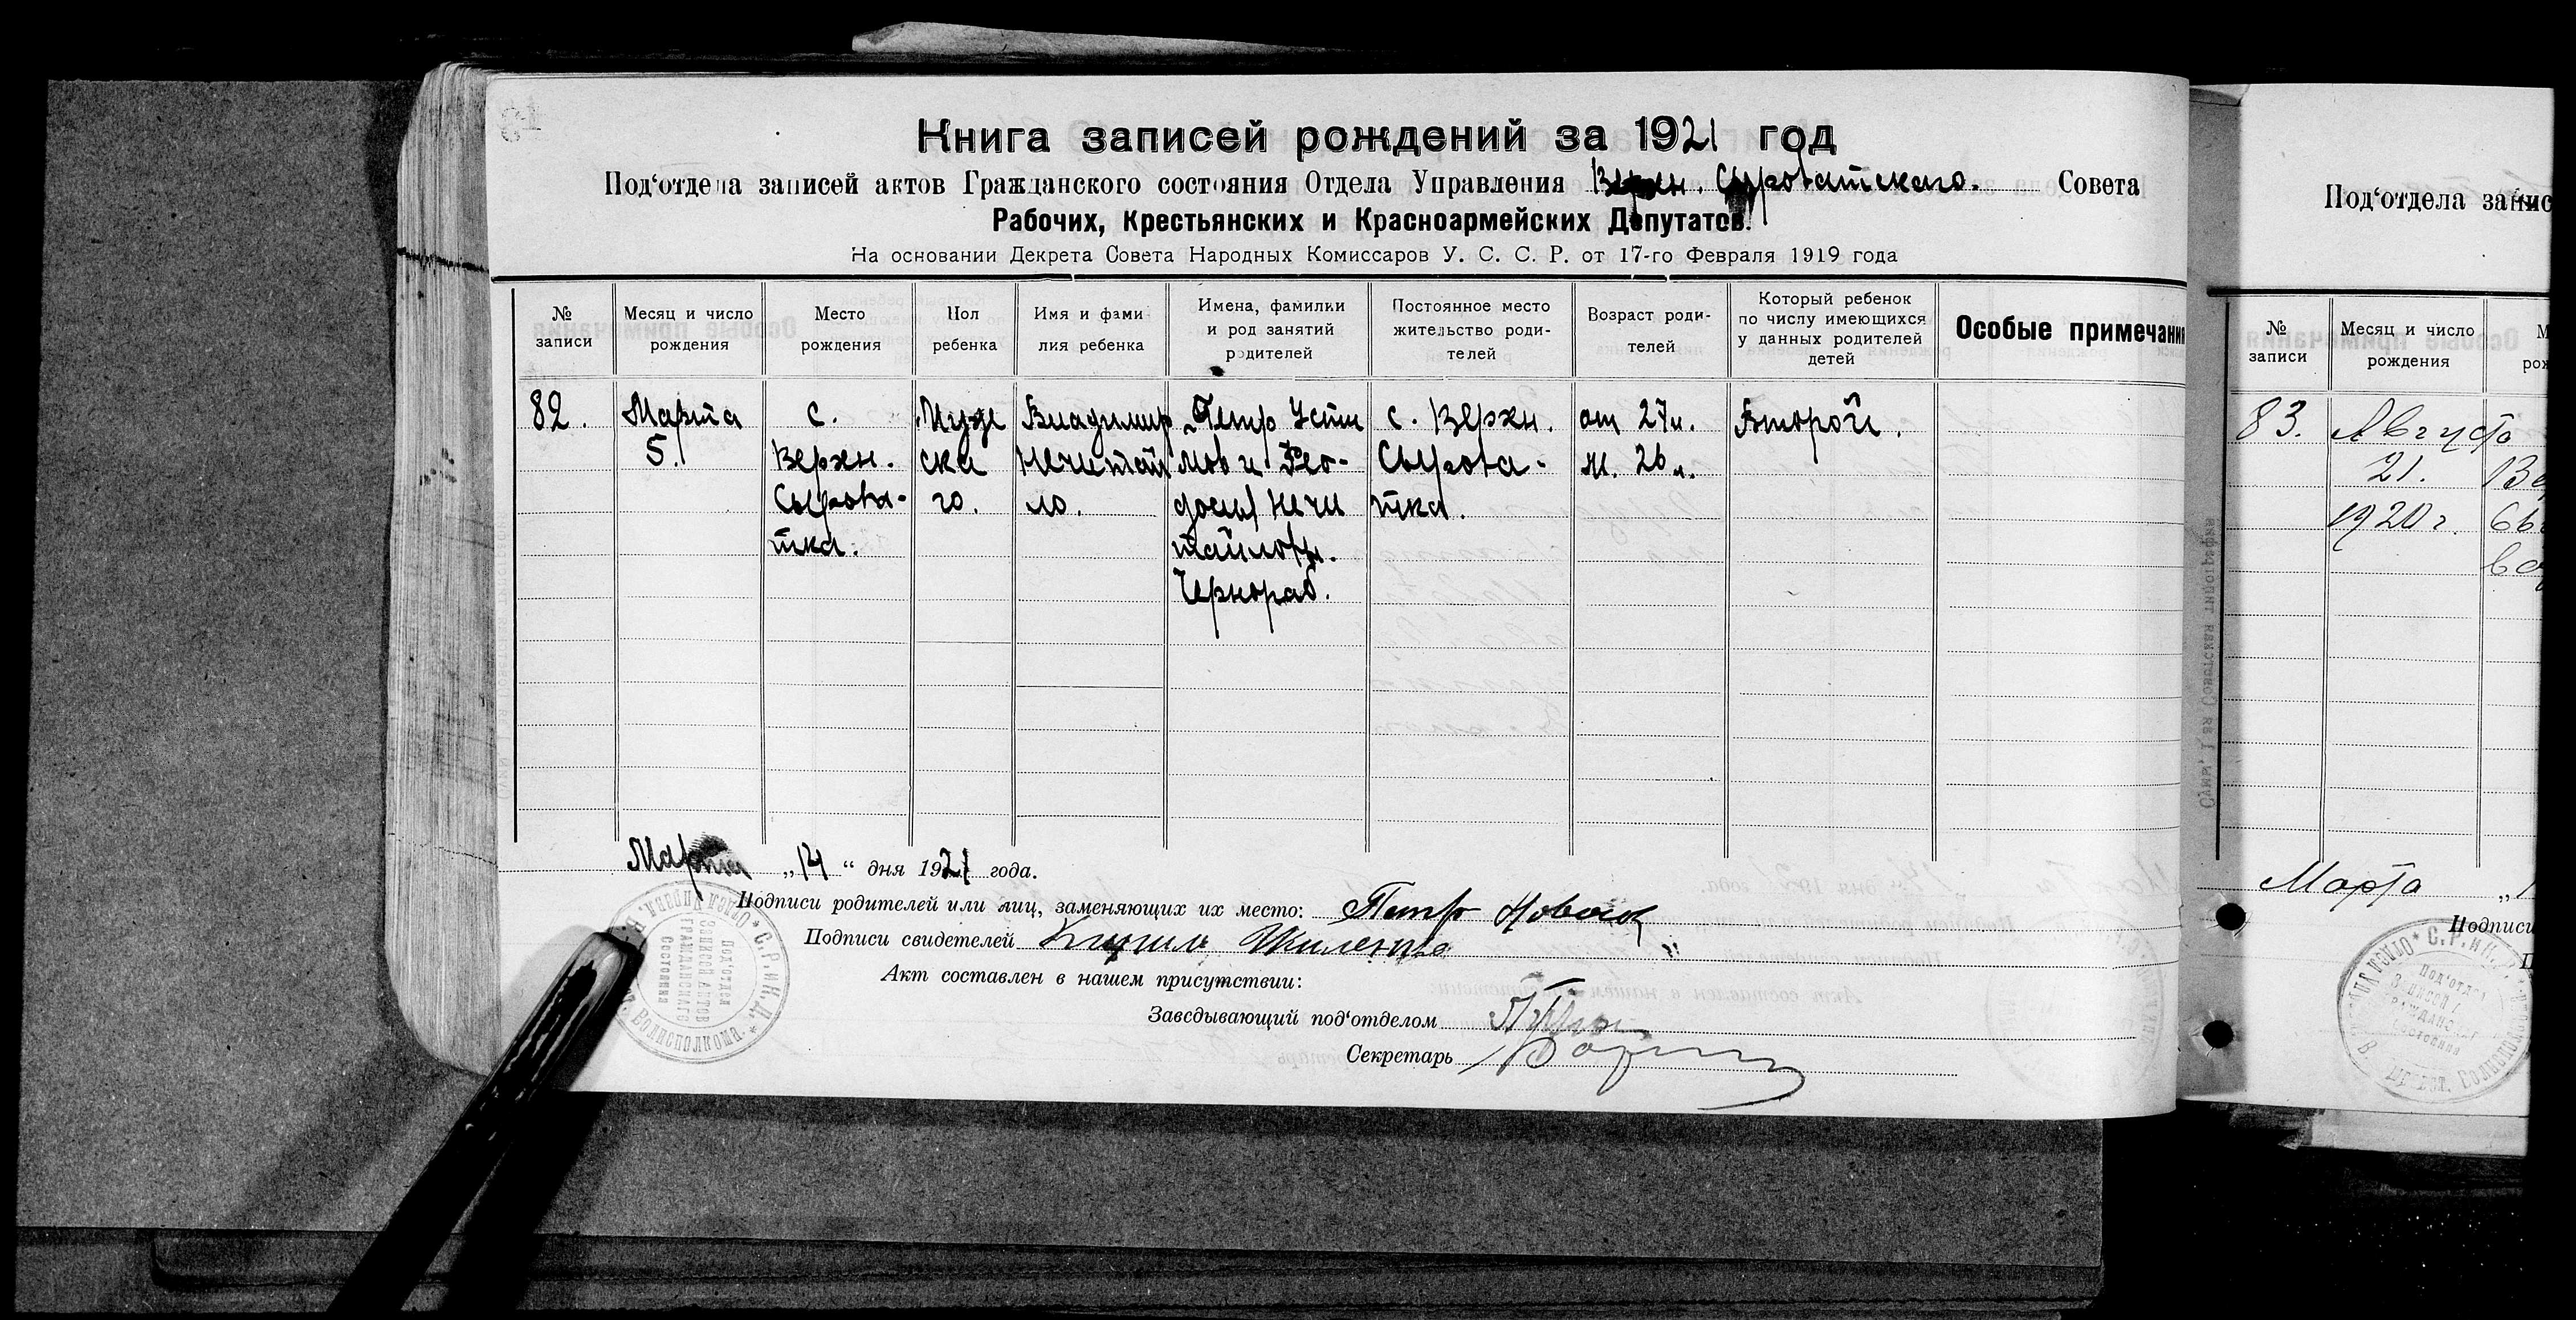 Книга записей рождений за 1921 год
Под‘отдела записей актов Гражданского состояния Отдела Управления Верхн. Сыроватского. Совета
Рабочих, Крестьянских и Красноармейских Депутатов.
На основании Декрета Совета Народных Комиссаров У. С. С. Р. от 17-го Февраля 1919 года
№ записи
Месяц и число рождения
Место рождения
Пол ребенка
Имя и фами-
лия ребенка
Имена, фамилии
и род занятий
родителей
Постоянное место
жительство роди-
телей
Возраст роди-
телей
Который ребенок
по числу имеющихся
у данных родителей
детей
Особые примечани
82.
Марта
5.
с.
Верхн.
Сырова-
тка.
Муже
ска
го.
Владимир
Нечитай
ло.
Петр Усти
мов и Фео-
досия Нечи
тайловы.
Чернораб.
с. Верхн.
Сырова-
тка.
от 27 л.
м. 26 л.
Второй.
Марта „14“ дня 1921 года.
Подписи родителей или лиц, заменяющих их место: Петр
Подписи свидетелей
Акт составлен в нашем присутствии:
Заведывающий под‘отделом
Секретарь
С.Р. и К.Д.
Под‘отдел
Записей актов
Гражданского
Состояния
Волисполкома
Под‘отдела запис
№ записи
Месяц и число рождения
83.
Августа
21.
1920 г.
Марта
Подписи
Сумы, 1-ая Советская типография